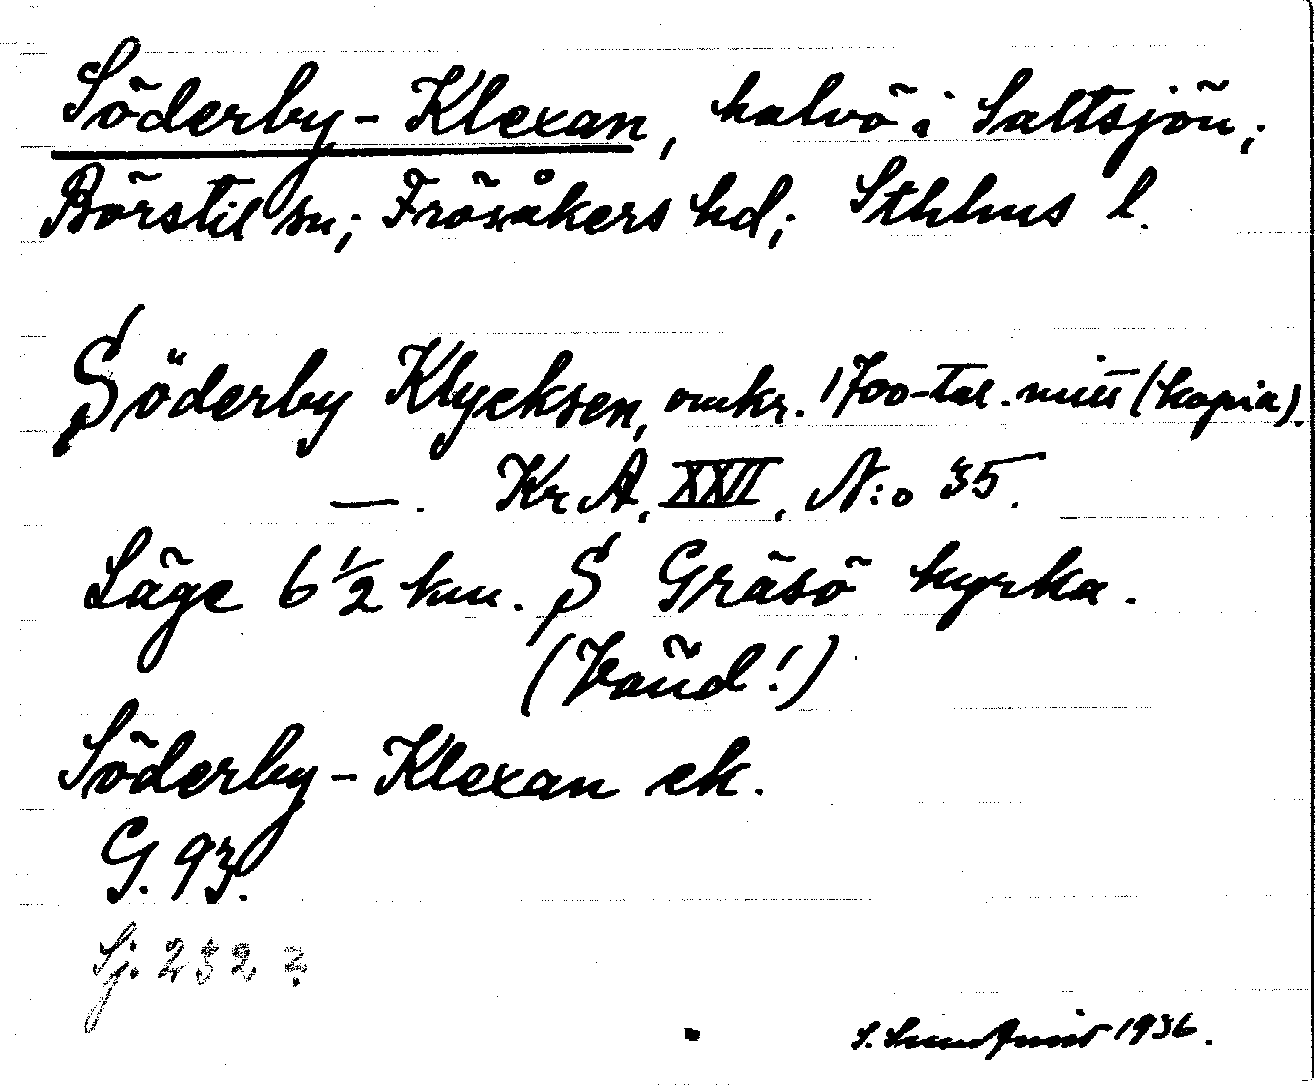 Söderby-Klexan, halvö i Saltsjön;
Börstil sn; Frösåkers hd; Sthlms l.
Söderby Klycksen, omkr. 1700-tal. mitt (kopia).
—. Kr A. XXVI, N:o 35.
Läge 6 1/2 km. S Gräsö kyrka.
(Känd!)
Söderby-Klexan ek.
G. 93.
Sj. 232 2.
S. Sundqvist 1936.